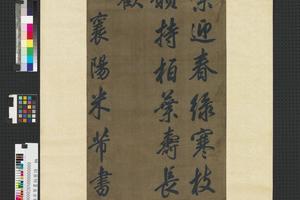 葉迎春綠寒枝
願持柏葉壽長
歡
襄陽米芾書